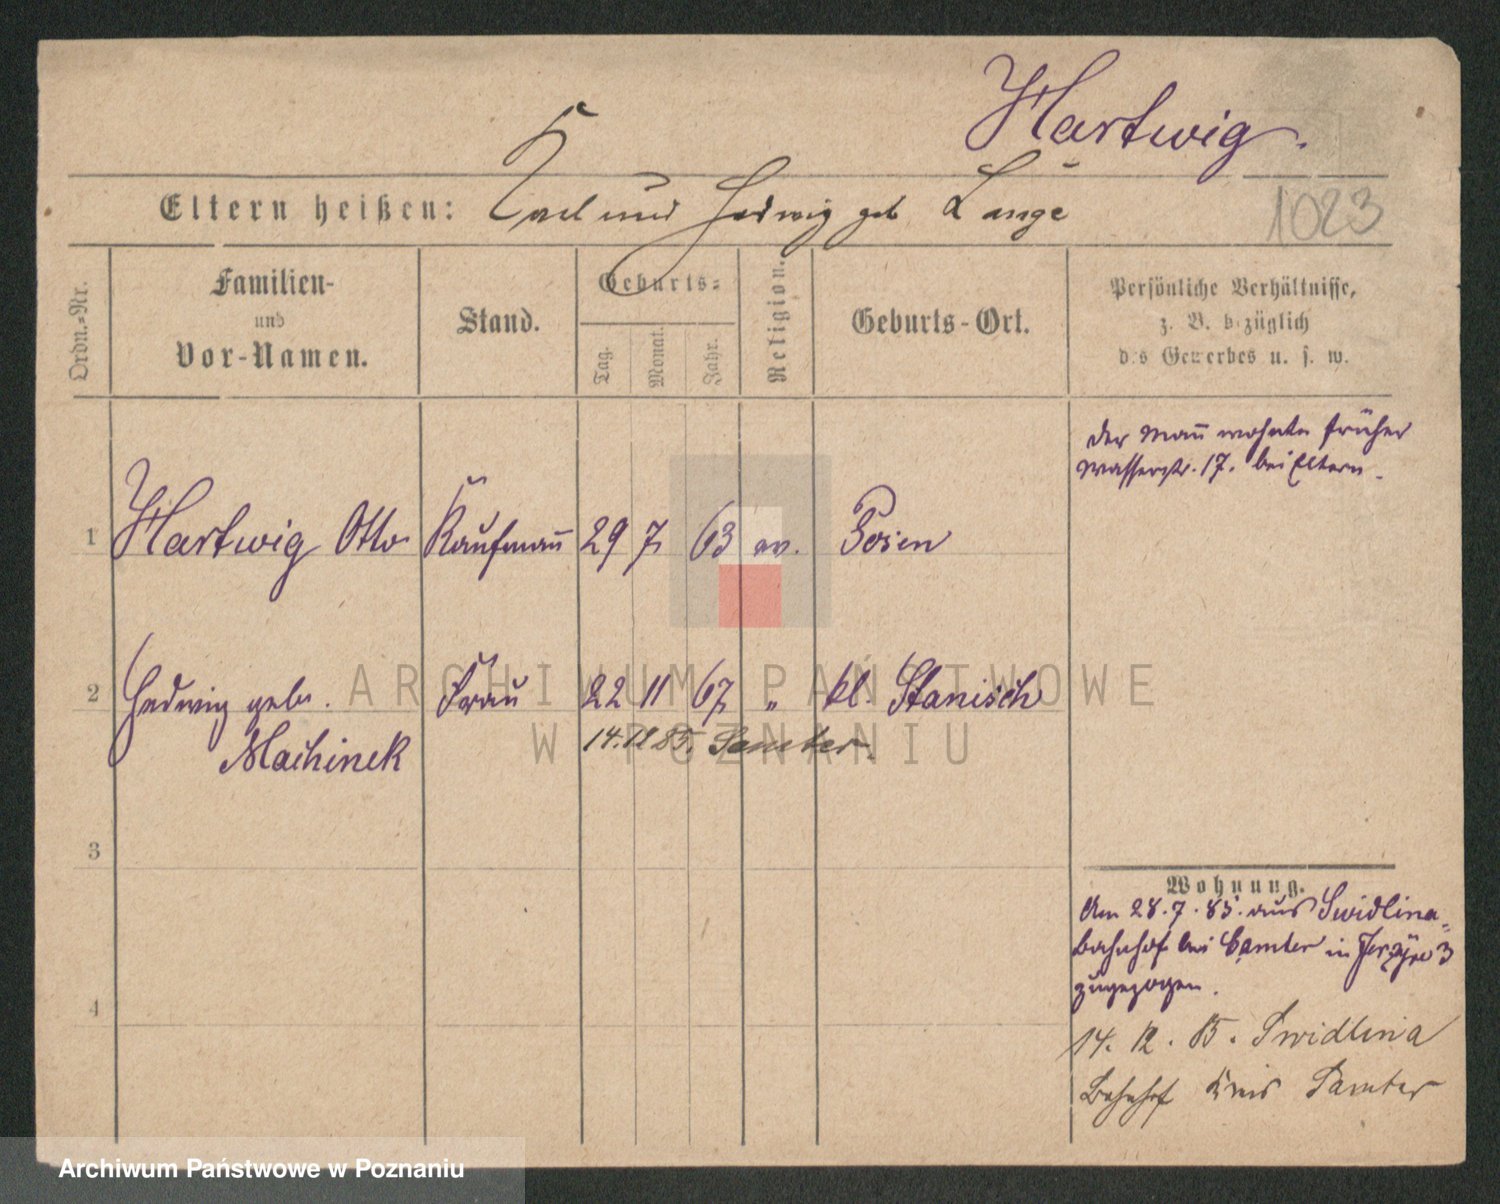 Hartwig.
1023
Eltern heißen: Carl und Hedwig geb Lange
Ordn.=Nr.
Familien-
und
Vor-Namen.
Stand.
Geburts=
Tag.
Monat.
Jahr.
Religion.
Geburts-Ort.
Persönliche Verhältnisse,
z. B. bezüglich
des Gewerbes u. s. w.
der Mann wohnte früher
Wasserstr. 17. bei Eltern.
1 Hartwig Otto Kaufmann 29 7 63 ev. Posen
2 Hedwig geb. Frau 22 11 67 " kl. Stanisch
Machinek
14.12 85. Samter.
3
4
Wohnung.
Am 28.7.85. aus Swidlina=
bahnhof bei Samter in 3
zugezogen.
14. 12. 85. Swidlina
Bahnhof Kreis Samter
ARCHIWUM PAŃSTWOWE
W POZNANIU
Archiwum Państwowe w Poznaniu